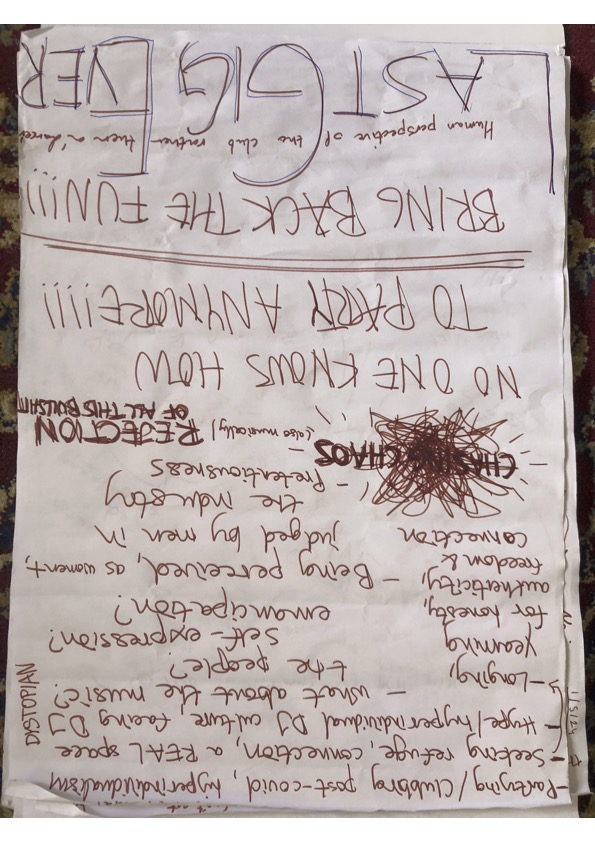 -Partying / Clubbing post-covid, hyperindividualism
- Seeking refuge, connection, a REAL space
- Hype/hyperindividual DJ culture facing DJ
DISTOPIAN
- what about the music?
the people?
self-expression?
emancipation?
-Longing,
yearning
for honesty,
authenticity,
freedom &
connection
- Being perceived, as woment,
judged by men in
the industry
- Pretentiousness
CHASING CHAOS
- (also musically) REJECTION
OF ALL THIS BULLSHIT
NO ONE KNOWS HOW
TO PARTY ANYMORE!!!!
BRING BACK THE FUN!!!
Human perspective of the club rather then a dancer
LAST GIG EVER